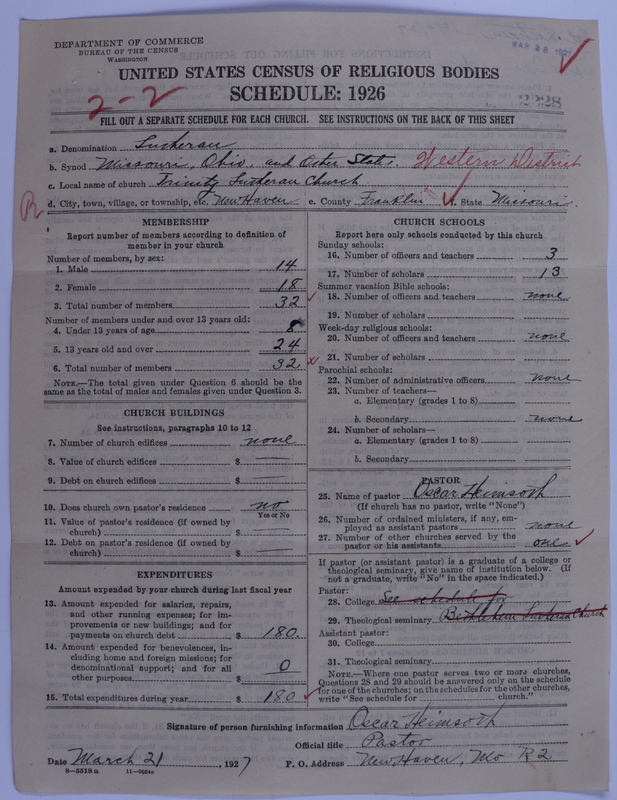 DEPARTMENT OF COMMERCE
BUREAU OF THE CENSUS
WASHINGTON
UNITED STATES CENSUS OF RELIGIOUS BODIES
SCHEDULE: 1926
2-2
2228
FILL OUT A SEPARATE SCHEDULE FOR EACH CHURCH. SEE INSTRUCTIONS ON THE BACK OF THIS SHEET
a. Denomination Lutheran
b. Synod Missouri, Ohio, and Other States. Western District
c. Local name of church Trinity Lutheran Church
R
d. City, town, village, or township, etc. New Haven e. County Franklin f. State Missouri.
MEMBERSHIP
Report number of members according to definition of
member in your church
Number of members, by sex:
1. Male 14
2. Female 18
3. Total number of members 32
Number of members under and over 13 years old:
4. Under 13 years of age 8
5. 13 years old and over 24
6. Total number of members 32
NOTE.—The total given under Question 6 should be the
same as the total of males and females given under Question 3.
CHURCH BUILDINGS
See instructions, paragraphs 10 to 12
7. Number of church edifices none
8. Value of church edifices $ —
9. Debt on church edifices $ —
10. Does church own pastor's residence no
Yes or No
11. Value of pastor's residence (if owned by
church) $ —
12. Debt on pastor's residence (if owned by
church) $ —
EXPENDITURES
Amount expended by your church during last fiscal year
13. Amount expended for salaries, repairs,
and other running expenses; for im-
provements or new buildings; and for
payments on church debt $ 180
14. Amount expended for benevolences, in-
cluding home and foreign missions; for
denominational support; and for all
other purposes $ 0
15. Total expenditures during year $ 180
CHURCH SCHOOLS
Report here only schools conducted by this church
Sunday schools:
16. Number of officers and teachers 3
17. Number of scholars 13
Summer vacation Bible schools:
18. Number of officers and teachers none
19. Number of scholars
Week-day religious schools:
20. Number of officers and teachers none
21. Number of scholars
Parochial schools:
22. Number of administrative officers none
23. Number of teachers—
a. Elementary (grades 1 to 8)
b. Secondary none
24. Number of scholars—
a. Elementary (grades 1 to 8)
b. Secondary
PASTOR
25. Name of pastor Oscar Heimsoth
(If church has no pastor, write "None")
26. Number of ordained ministers, if any, em-
ployed as assistant pastors none
27. Number of other churches served by the
pastor or his assistants one
If pastor (or assistant pastor) is a graduate of a college or
theological seminary, give name of institution below. (If
not a graduate, write "No" in the space indicated.)
Pastor:
28. College See schedule for
29. Theological seminary Bethlehem Lutheran Church
Assistant pastor:
30. College
31. Theological seminary
NOTE.—Where one pastor serves two or more churches,
Questions 28 and 29 should be answered only on the schedule
for one of the churches; on the schedules for the other churches,
write "See schedule for church."
Signature of person furnishing information Oscar Heimsoth
Official title Pastor
Date March 21, 1927 P. O. Address New Haven, Mo R 2
8-5518a 11-9034a